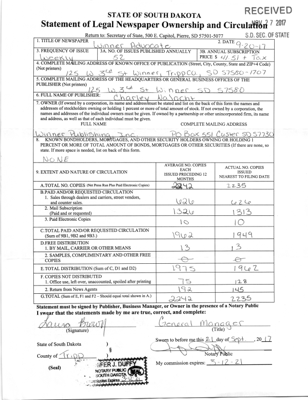 RECEIVED
STATE OF SOUTH DAKOTA
Statement of Legal Newspaper Ownership and Circulation
27 2017
Return to: Secretary of State, 500 E. Capitol, Pierre, SD 57501-5077
S.D. SEC. OF STATE
1. TITLE OF NEWSPAPER
2. DATE
Winner Advocate
9-20-17
3. FREQUENCY OF ISSUE
3A. NO. OF ISSUES PUBLISHED ANNUALLY
3B. ANNUAL SUBSCRIPTION
Weekly
52
PRICE $ 41.51 + Tax
4. COMPLETE MAILING ADDRESS OF KNOWN OFFICE OF PUBLICATION (Street, City, County, State and ZIP+4 Code)
(Not Printers)
125 W 3rd St Winner, Tripp Co, SD 57580-1707
5. COMPLETE MAILING ADDRESS OF THE HEADQUARTERS OR GENERAL BUSINESS OFFICES OF THE
PUBLISHER (Not printer)
125 W. 3rd St Winner SD 57580
6. FULL NAME OF PUBLISHER
Charley Najacht
7. OWNER (If owned by a corporation, its name and address must be stated and list on the back of this form the names and
addresses of stockholders owning or holding 1 percent or more of total amount of stock. If not owned by a corporation, the
names and addresses of the individual owners must be given. If owned by a partnership or other unincorporated firm, its name
and address, as well as that of each individual must be given.)
FULL NAME
COMPLETE MAILING ADDRESS
Winner Publishing Inc.
PO Box 551 Custer SD 57730
8. KNOWN BONDHOLDERS, MORTGAGEES, AND OTHER SECURITY HOLDERS OWNING OR HOLDING 1
PERCENT OR MORE OF TOTAL AMOUNT OF BONDS, MORTGAGES OR OTHER SECURITIES (If there are none, so
state. If more space is needed, list on back of this form).
NONE
9. EXTENT AND NATURE OF CIRCULATION
AVERAGE NO. COPIES EACH ISSUED PRECEDING 12 MONTHS
ACTUAL NO. COPIES ISSUED NEAREST TO FILING DATE
A. TOTAL NO. COPIES (Net Press Run Plus Paid Electronic Copies)
2242
2235
B. PAID AND/OR REQUESTED CIRCULATION
1. Sales through dealers and carriers, street vendors,
and counter sales
626
626
2. Mail Subscription
(Paid and or requested)
1326
1313
3. Paid Electronic Copies
10
10
C. TOTAL PAID AND/OR REQUESTED CIRCULATION
(Sum of 9B1, 9B2 and 9B3.)
1962
1949
D. FREE DISTRIBUTION
1. BY MAIL, CARRIER OR OTHER MEANS
13
13
2. SAMPLES, COMPLIMENTARY AND OTHER FREE
COPIES
E. TOTAL DISTRIBUTION (Sum of C, D1 and D2)
1975
1962
F. COPIES NOT DISTRIBUTED
1. Office use, left over, unaccounted, spoiled after printing
75
128
2. Return from News Agents
192
145
G. TOTAL (Sum of E, F1 and F2 - Should equal total shown in A.)
2242
2235
Statement must be signed by Publisher, Business Manager, or Owner in the presence of a Notary Public
I swear that the statements made by me are true, correct, and complete:
General Manager
(Signature)
(Title)
State of South Dakota
Sworn to before me this 21 day of Sept, 2017
County of Tripp
Notary Public
(Seal)
My commission expires: 3-12-21
FER J. DUFFY
NOTARY PUBLIC
SOUTH DAKOTA